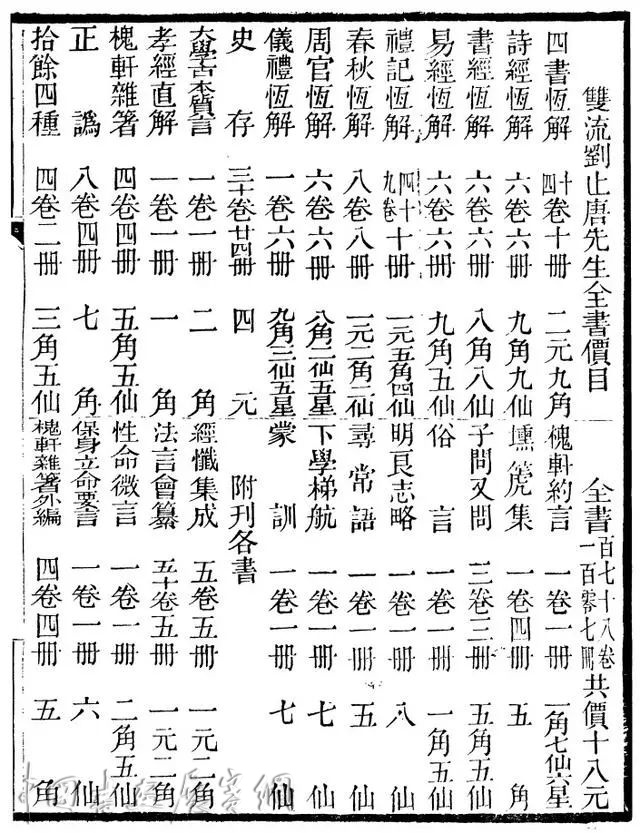 雙流劉止唐先生全書價目　全書百七十八卷一百零七冊共價十八元
四書恆解　十四卷十冊　二元九角　槐軒約言　一卷一冊　一角七仙六星
詩經恆解　六卷六冊　九角九仙　壎篪集　一卷四冊　五角
書經恆解　六卷六冊　八角八仙　子問又問　三卷三冊　五角五仙
易經恆解　六卷六冊　九角五仙　俗言　一卷一冊　一角五仙
禮記恆解　四十九卷十冊　一元五角四仙　明良志略　一卷一冊　八仙
春秋恆解　八卷八冊　一元二角二仙　尋常語　一卷一冊　五仙
周官恆解　六卷六冊　八角二仙五星　下學梯航　一卷一冊　七仙
儀禮恆解　一卷六冊　九角三仙五星　蒙訓　一卷一冊　七仙
史存　三十卷廿四冊　四元　附刊各書
大學古本質言　一卷一冊　二角　經懺集成　五卷五冊　一元二角
孝經直解　一卷一冊　一角　法言會纂　五十卷五冊　一元二角
槐軒雜著　四卷四冊　五角五仙　性命微言　一卷一冊　二角五仙
正譌　八卷四冊　七角　保身立命要言　一卷一冊　六仙
拾餘四種　四卷二冊　三角五仙　槐軒雜著外編　四卷四冊　五角